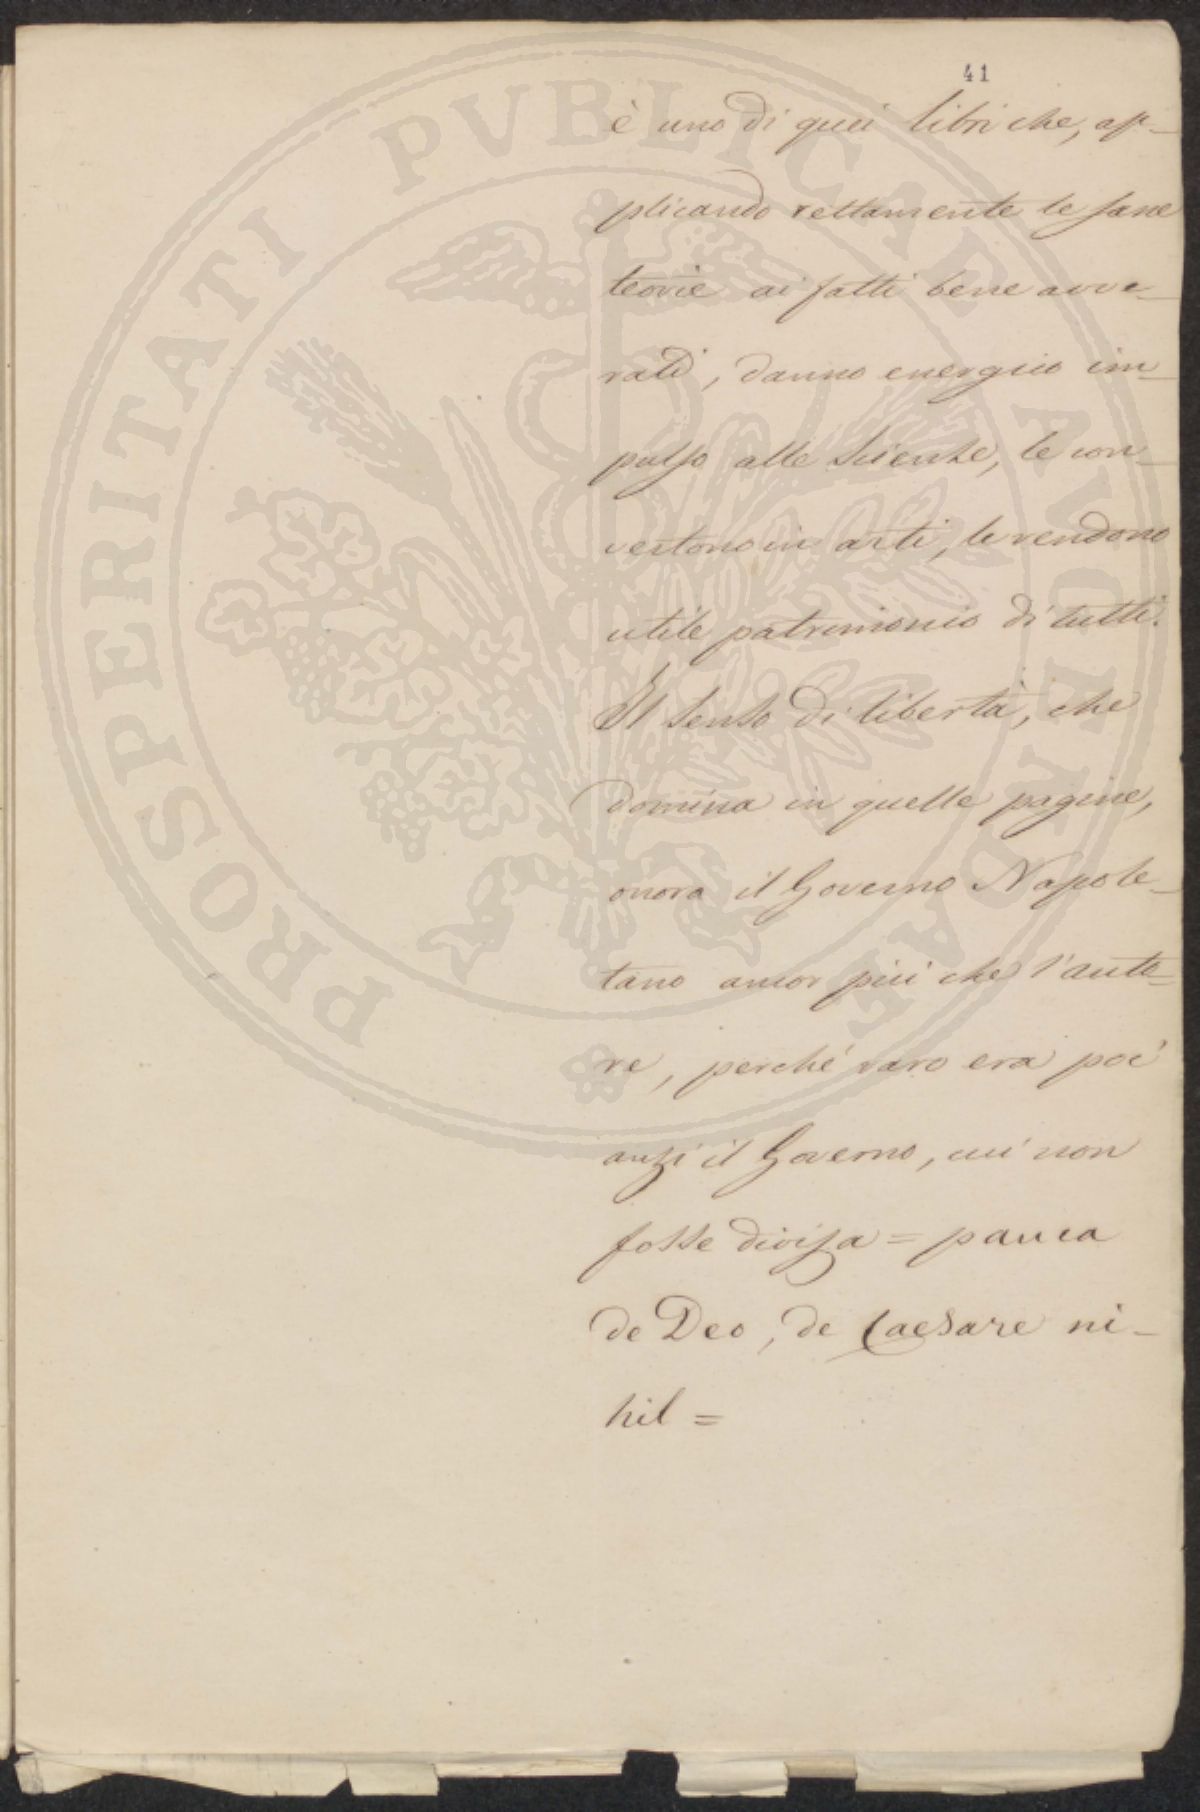 41
è uno di quei libri che, ap-
plicando rettamente le sane
teorie ai fatti bene avve-
rati, danno energico im-
pulso alle Scienze, le con-
vertono in arti, le rendono
utile patrimonio di tutti.
Il senso di libertà, che
domina in quelle pagine,
onora il Governo Napole-
tano ancor più che l'auto-
re, perché raro era poc'
anzi il Governo, cui non
fosse divisa = pauca
de Deo, de Caesare ni-
hil =
PROSPERITATI PVBLICAE AVGENDAE